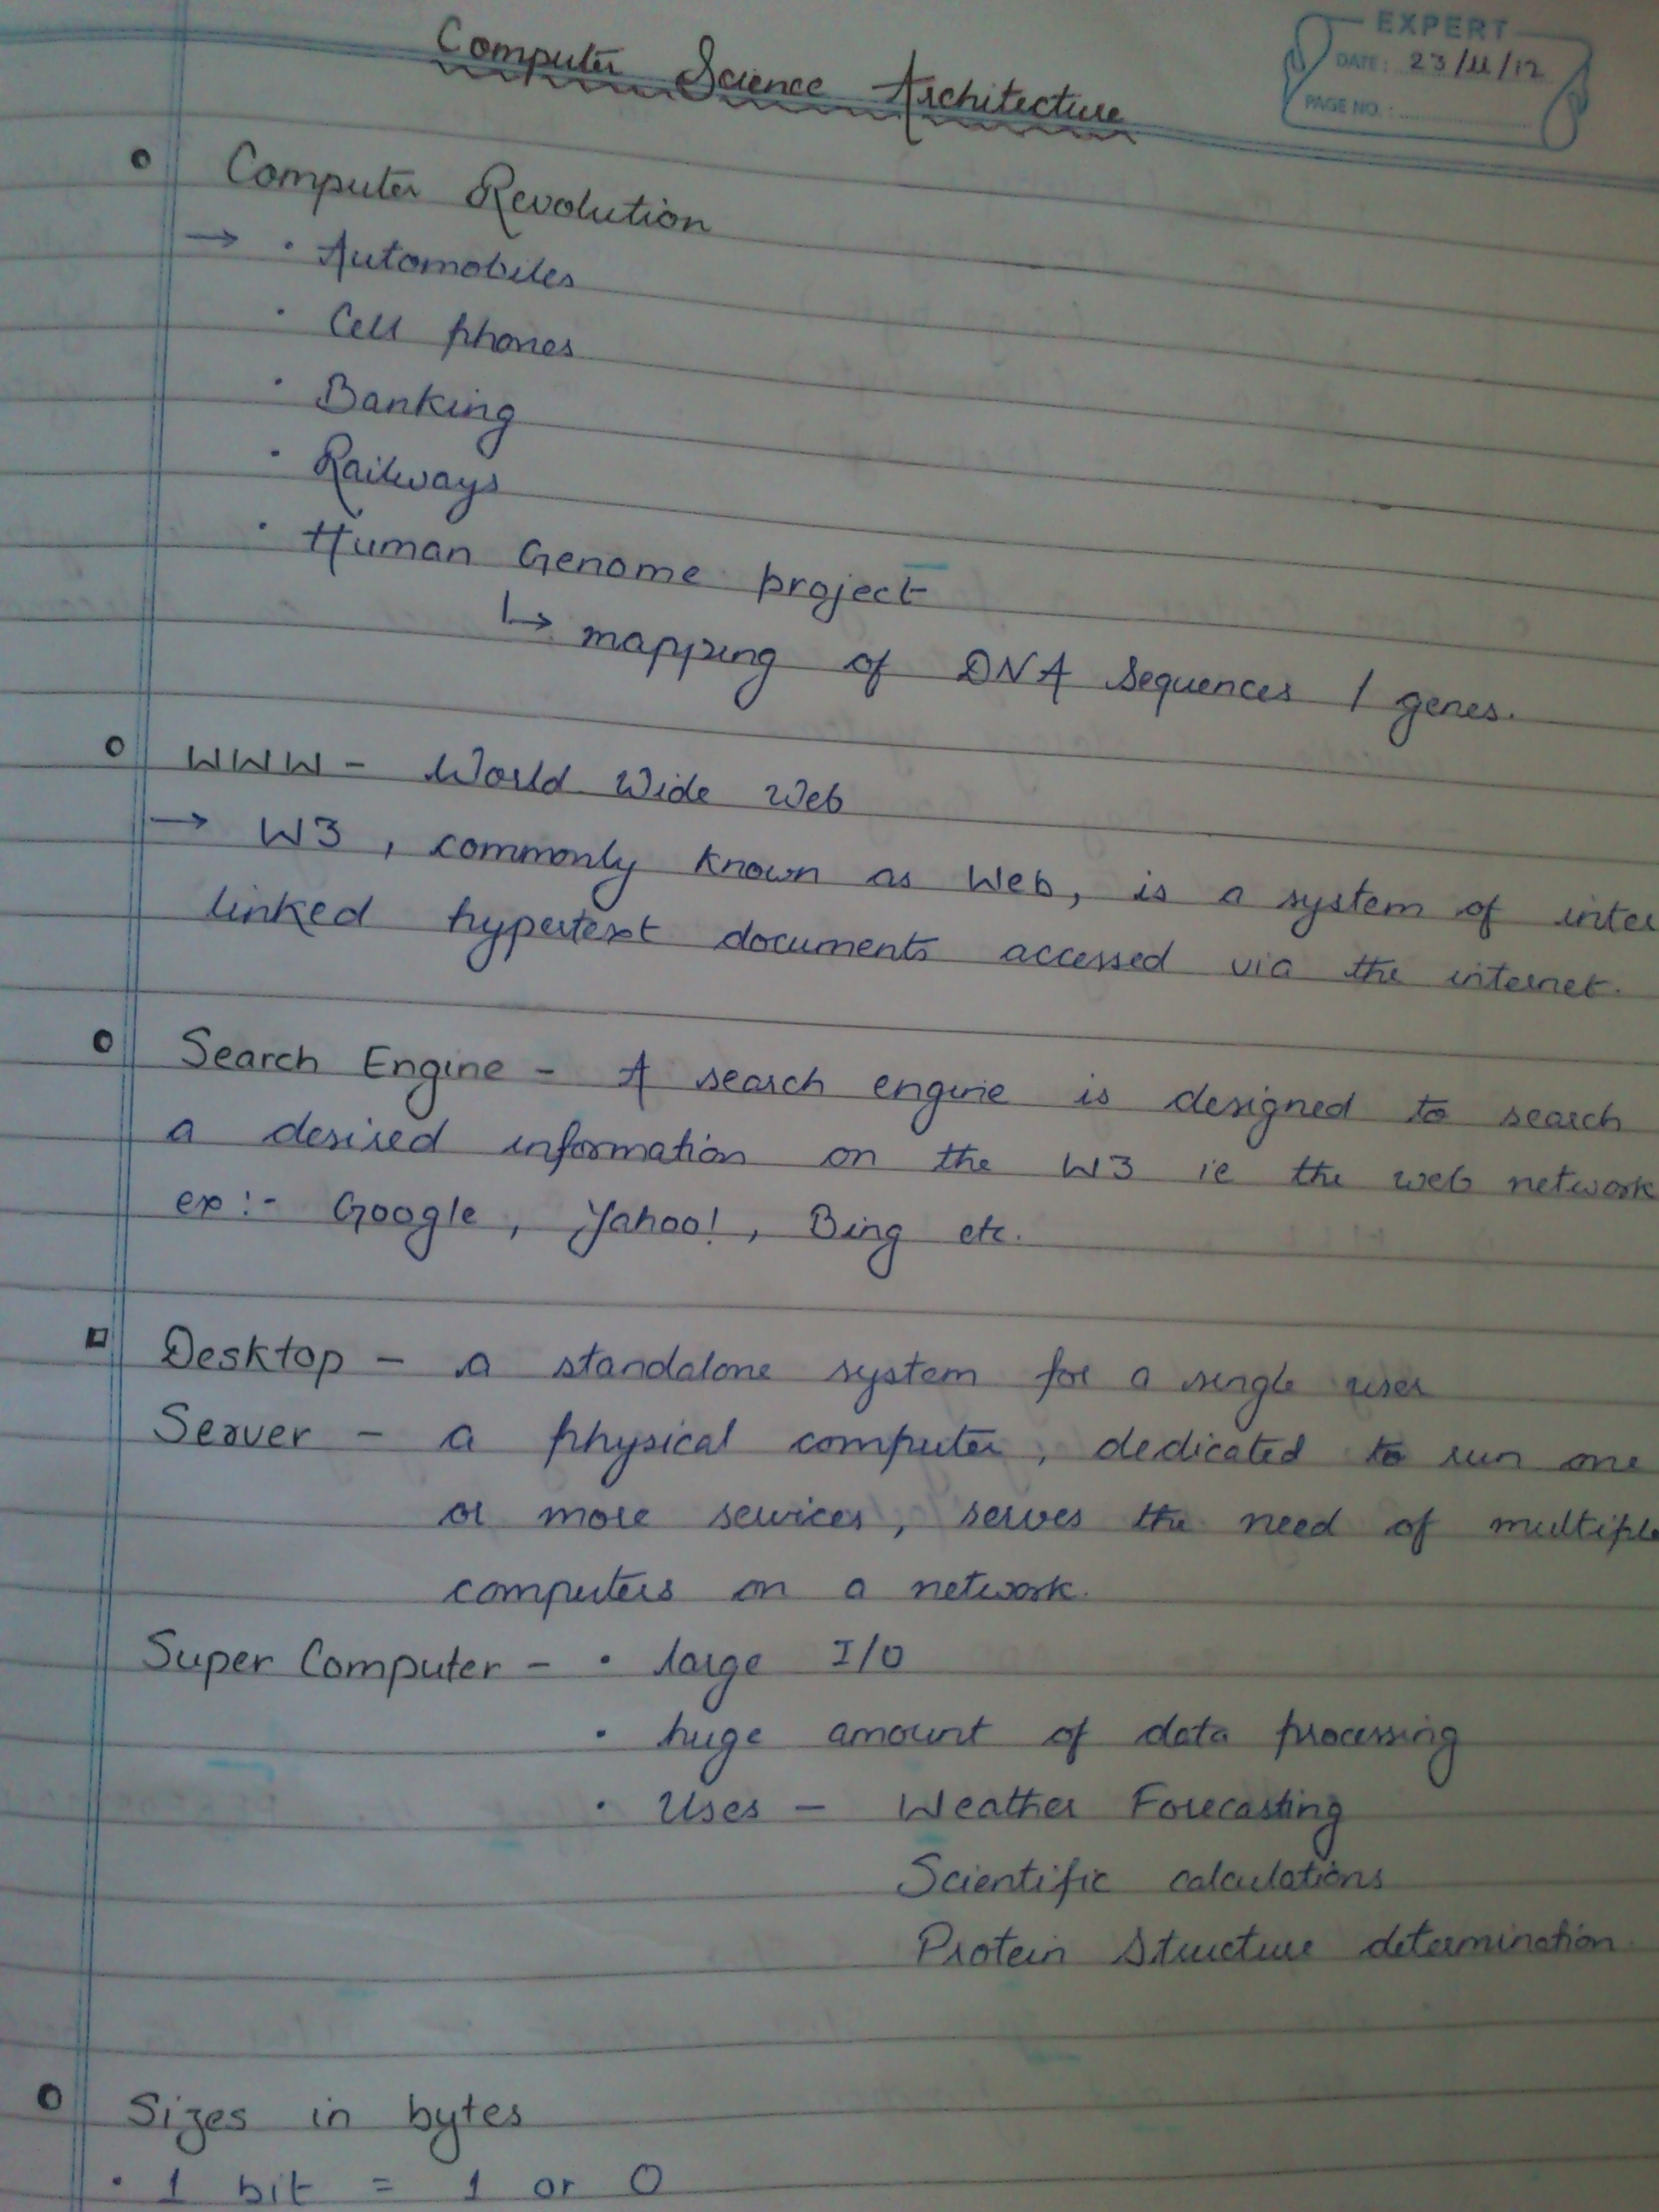 EXPERT
DATE: 23/11/12
PAGE NO.:
Computer Science Architecture
Computer Revolution
→ · Automobiles
· Cell phones
· Banking
· Railways
· Human Genome project
↳ mapping of DNA sequences / genes.
WWW - World Wide Web
→ W3, commonly known as Web, is a system of inter
linked hypertext documents accessed via the internet.
Search Engine - A search engine is designed to search
a desired information on the W3 ie the web network
ex:- Google, Yahoo!, Bing etc.
Desktop - a standalone system for a single user
Server - a physical computer, dedicated to run one
or more services, serves the need of multiple
computers on a network.
Super Computer - · large I/O
· huge amount of data processing
· Uses - Weather Forecasting
Scientific calculations
Protein Structure determination
Sizes in bytes
· 1 bit = 1 or 0